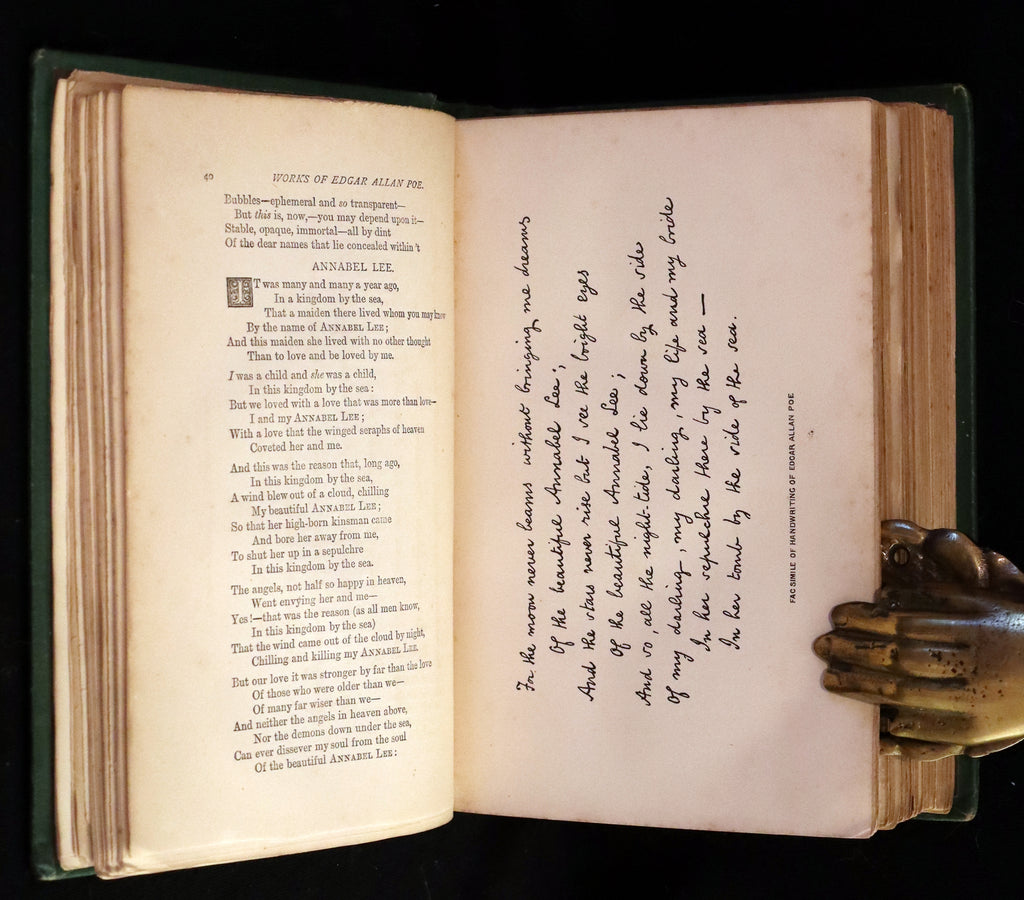 40
WORKS OF EDGAR ALLAN POE.
Bubbles—ephemeral and so transparent—
But this is, now,—you may depend upon it—
Stable, opaque, immortal—all by dint
Of the dear names that lie concealed within 't
ANNABEL LEE.
IT was many and many a year ago,
In a kingdom by the sea,
That a maiden there lived whom you may know
By the name of ANNABEL LEE;
And this maiden she lived with no other thought
Than to love and be loved by me.
I was a child and she was a child,
In this kingdom by the sea:
But we loved with a love that was more than love—
I and my ANNABEL LEE;
With a love that the winged seraphs of heaven
Coveted her and me.
And this was the reason that, long ago,
In this kingdom by the sea,
A wind blew out of a cloud, chilling
My beautiful ANNABEL LEE;
So that her high-born kinsman came
And bore her away from me,
To shut her up in a sepulchre
In this kingdom by the sea.
The angels, not half so happy in heaven,
Went envying her and me—
Yes!—that was the reason (as all men know,
In this kingdom by the sea)
That the wind came out of the cloud by night,
Chilling and killing my ANNABEL LEE.
But our love it was stronger by far than the love
Of those who were older than we—
Of many far wiser than we—
And neither the angels in heaven above,
Nor the demons down under the sea,
Can ever dissever my soul from the soul
Of the beautiful ANNABEL LEE:
For the moon never beams without bringing me dreams
Of the beautiful Annabel Lee;
And the stars never rise but I see the bright eyes
Of the beautiful Annabel Lee;
And so, all the night-tide, I lie down by the side
Of my darling, my darling, my life and my bride
In her sepulchre there by the sea —
In her tomb by the side of the sea.
FACSIMILE OF HANDWRITING OF EDGAR ALLAN POE